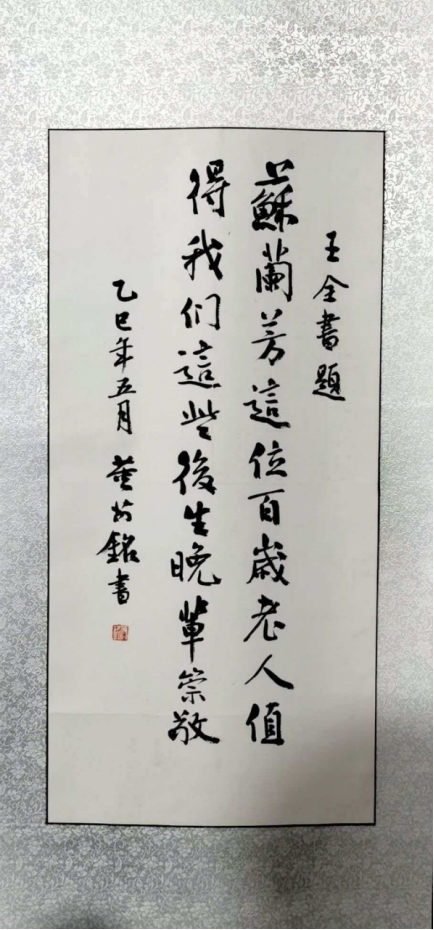 王全書題
蘇蘭芳這位百歲老人值
得我们這些後生晚輩崇敬
乙巳年五月 銘書